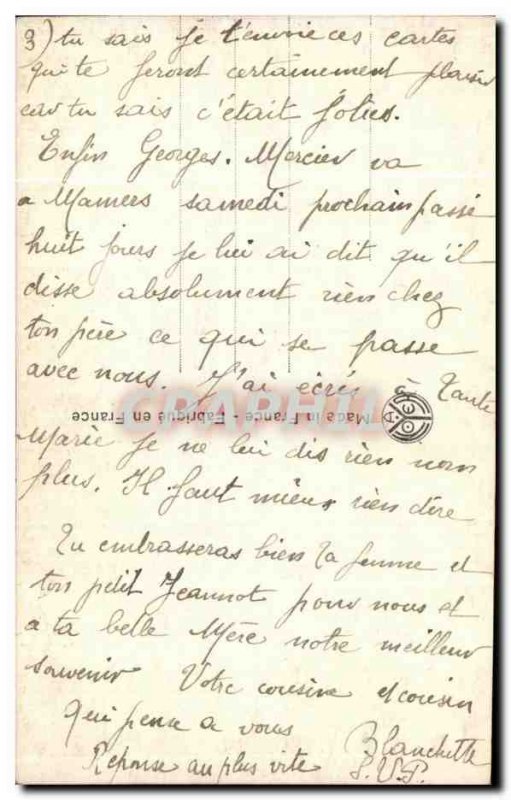 3) tu sais je t'envoie ces cartes
qui te feront certainement plaisir
car tu sais c'était jolies.
Enfin Georges. Mercier va
a Mamers samedi prochain passé
huit jours je lui ai dit qu'il
disse absolument rien chez
ton père ce qui se passe
avec nous. J'ai écris à Tante
Made in France - Fabriqué en France
CRAPHI
Marie je ne lui dis rien non
plus. Il faut mieux rien dire
Tu embrasseras bien ta femme et
ton petit Jeannot pour nous et
a ta belle Mère notre meilleur
souvenir Votre cousine et cousin
qui pense a vous
Blanchette
Reponse au plus vite S.V.P.